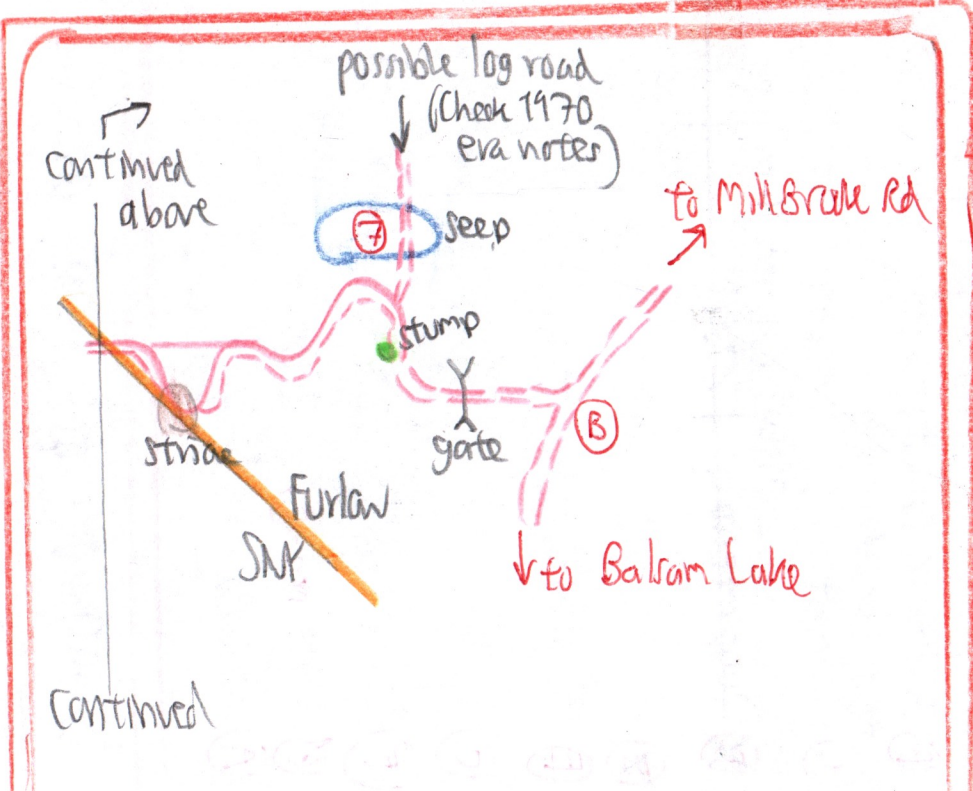 possible log road
(Check 1970
era notes)
continued
above
to Mill Brook Rd
7
seep
stump
B
gate
striae
Furlow
to Balsam Lake
continued